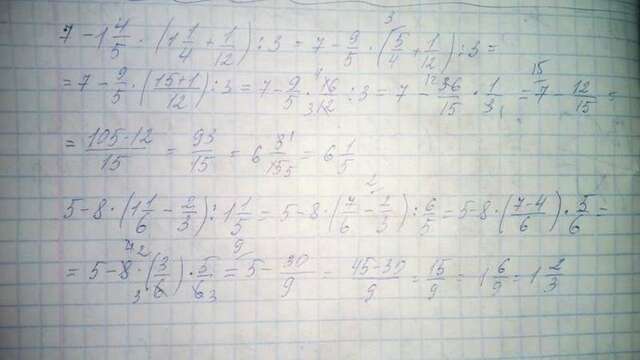 7 - 1 4/5 · (1 1/4 + 1/12) : 3 = 7 - 9/5 · (5/4 + 1/12) : 3 =
= 7 - 9/5 · (15+1/12) : 3 = 7 - 9/5 · 16/12 : 3 = 7 - 36/15 · 1/3 = 7 - 12/15 =
= 105-12/15 = 93/15 = 6 3/15 = 6 1/5
5 - 8 · (1 1/6 - 2/3) : 1 1/5 = 5 - 8 · (7/6 - 2/3) : 6/5 = 5 - 8 · (7-4/6) · 5/6 =
= 5 - 8 · (3/6) · 5/6 = 5 - 30/9 = 45-30/9 = 15/9 = 1 6/9 = 1 2/3